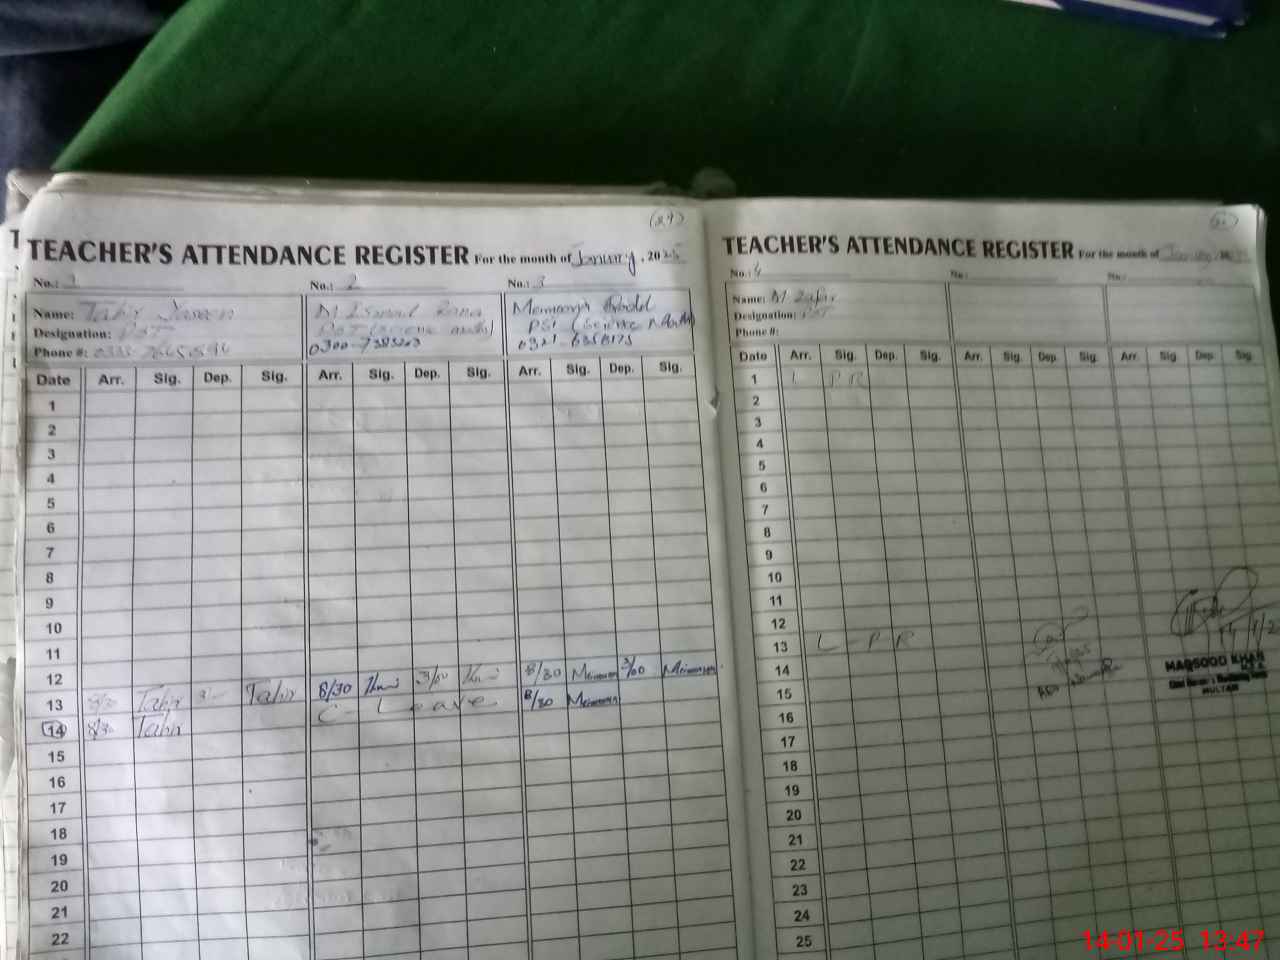 (29)
TEACHER'S ATTENDANCE REGISTER For the month of January, 2025
No.: 1 No.: 2 No.: 3
Name: Tahir
Designation: PST
Phone #:
M Ismail Rana
PST (Science math)
0300-7383203
PST (Science Math)
0321-6358175
Date Arr. Sig. Dep. Sig. Arr. Sig. Dep. Sig. Arr. Sig. Dep. Sig.
1
2
3
4
5
6
7
8
9
10
11
12
13 8/30 Tahir 3/ Tahir 8/30 3/00 8/30 3/00
14 8/30 Tahir C-Leave 8/30
15
16
17
18
19
20
21
22
TEACHER'S ATTENDANCE REGISTER For the month of January 20
No.: 4 No.: No.:
Name: M Zafar
Designation: PST
Phone #:
Date Arr. Sig. Dep. Sig. Arr. Sig. Dep. Sig. Arr. Sig. Dep. Sig.
1 L P R
2
3
4
5
6
7
8
9
10
11
12
13 L-PR
14
15
16
17
18
19
20
21
22
23
24
25
MAQSOOD KHAN
MULTAN
14-01-25 13:47